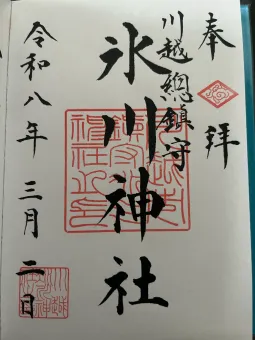 奉拝
川越總鎮守
氷川神社
令和八年三月二日